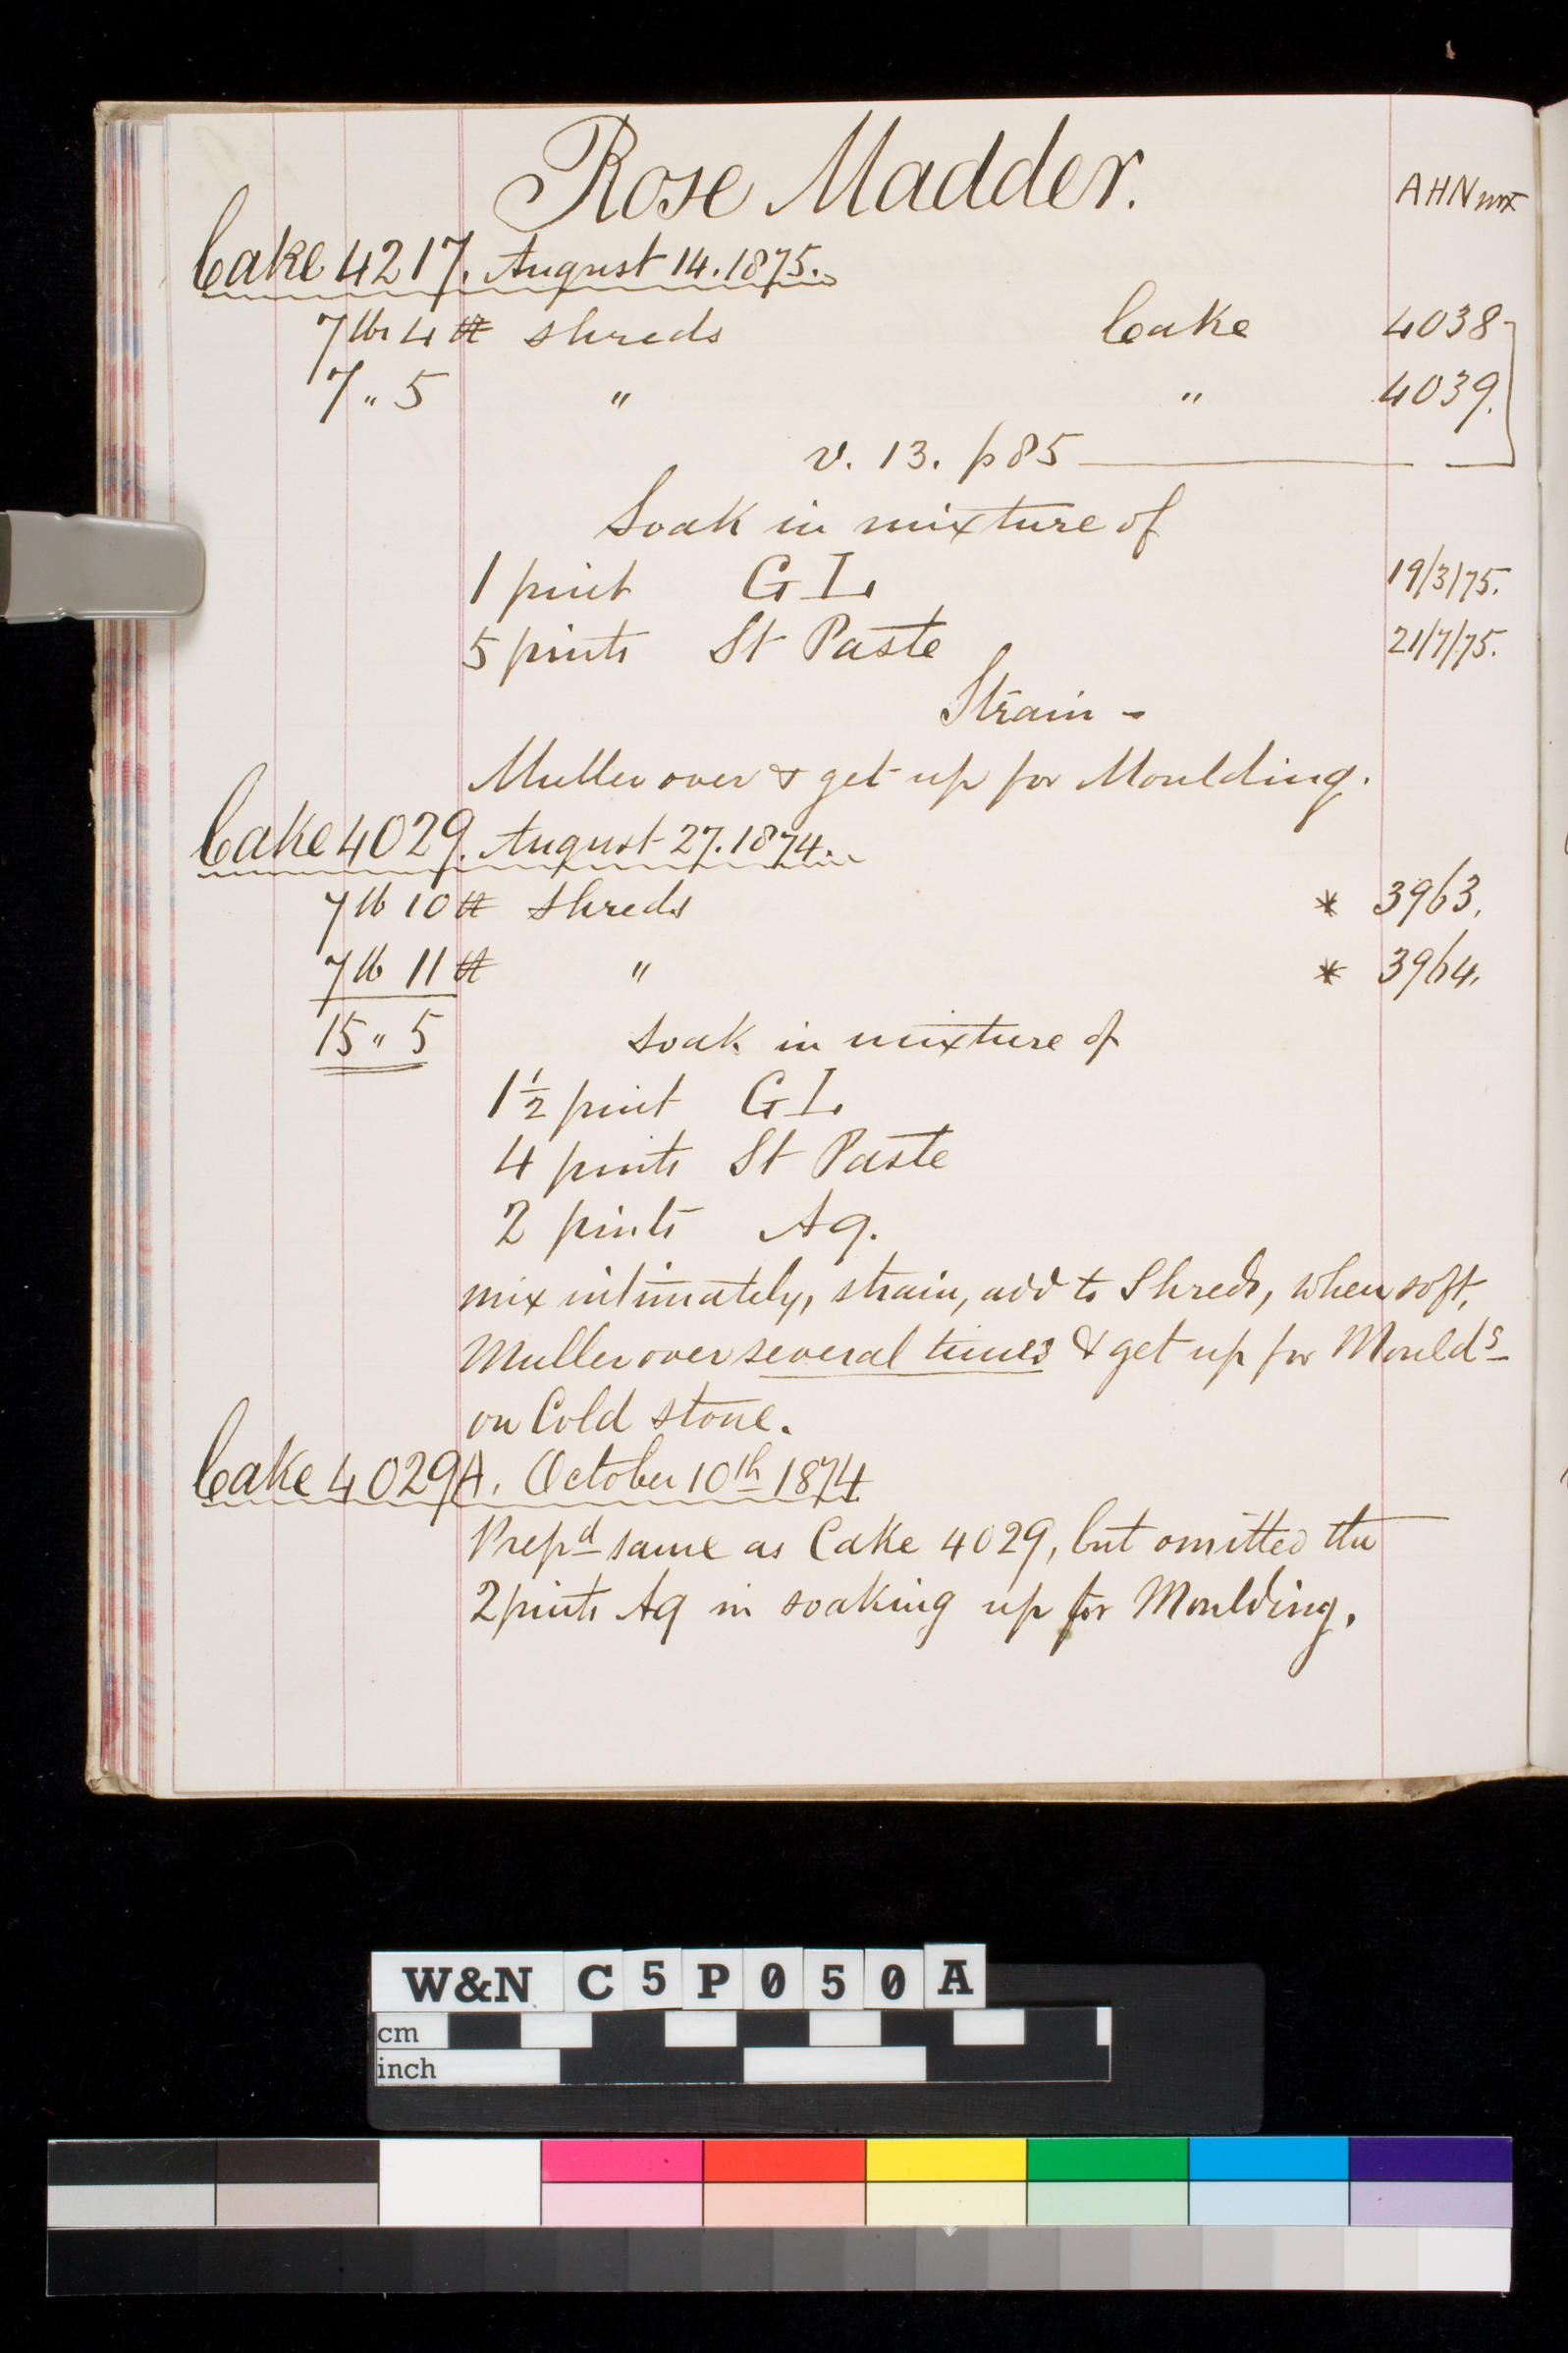 Rose Madder.
AHN
Cake 4217. August 14. 1875.
7 lbs 4 ℔ shreds Cake 4038
7 " 5 " " 4039.
v. 13. p 85
Soak in mixture of
1 pint G L. 19/3/75.
5 pints St Paste 21/7/75.
Strain -
Muller over & get up for Moulding.
Cake 4029. August 27. 1874.
7 lb 10 ℔ shreds * 3963.
7 lb 11 ℔ " * 3964.
15 " 5 Soak in mixture of
1½ pint G L.
4 pints St Paste
2 pints Aq.
mix intimately, strain, add to Shreds, when soft,
Muller over several times & get up for Mouldˢ
on Cold stone.
Cake 4029A. October 10th 1874
Prepd same as Cake 4029, but omitted the
2 pints Aq in soaking up for Moulding.
W&N C5P050A
cm
inch